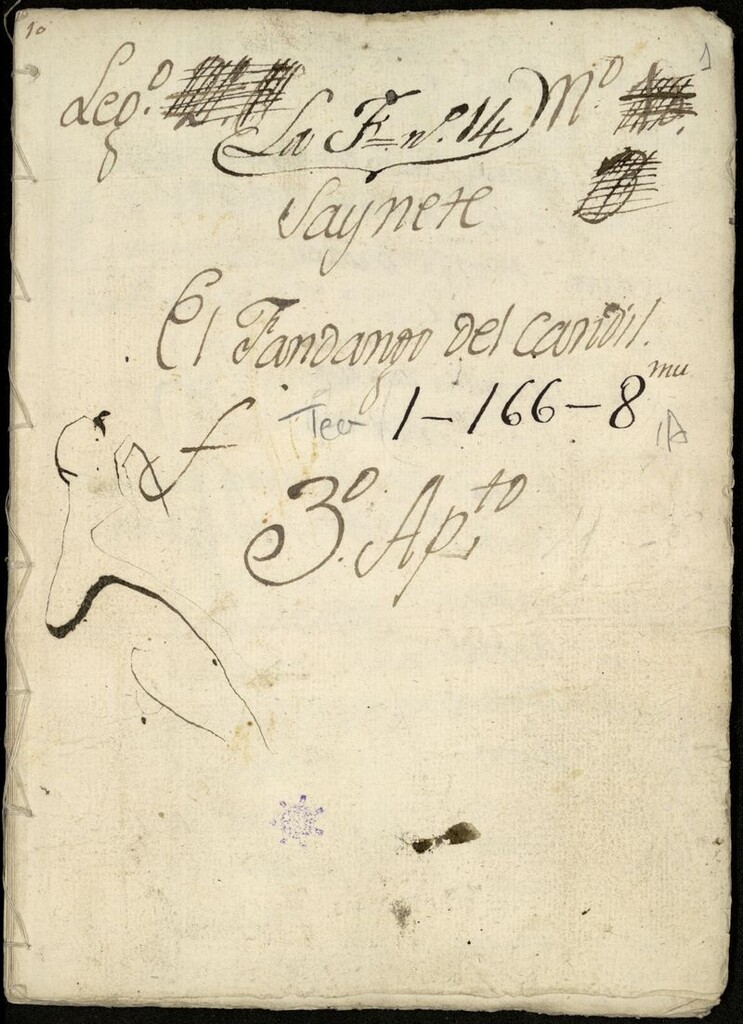 10
1
Leg.º Mº
La F= nº. 14
Saynete
El Fandango del candil.
Tea 1-166-8 mu
3º. Ap.to